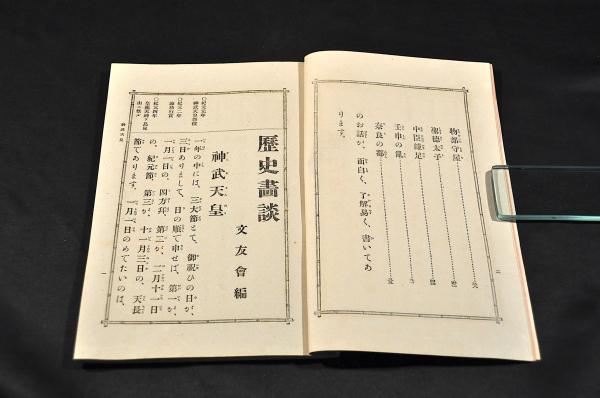 二
物部守屋
聖德太子
中臣鎌足
壬申の亂
奈良の都
のお話が、面白く、了解易く、書いてあ
ります。
歷史畫談
文友會編
神武天皇
一年の中には、三大節とて、御祝ひの日が、
三日ありまして、日の順で申せば、第一が、
一月一日の、四方拜、第二が、二月十一日
の、紀元節、第三が、十一月三日の、天長
節であります。一月一日のめでたいのは、
〇紀元元年
神武天皇卽位
〇紀元二年
論功行賞
〇紀元四年
神武天皇
一